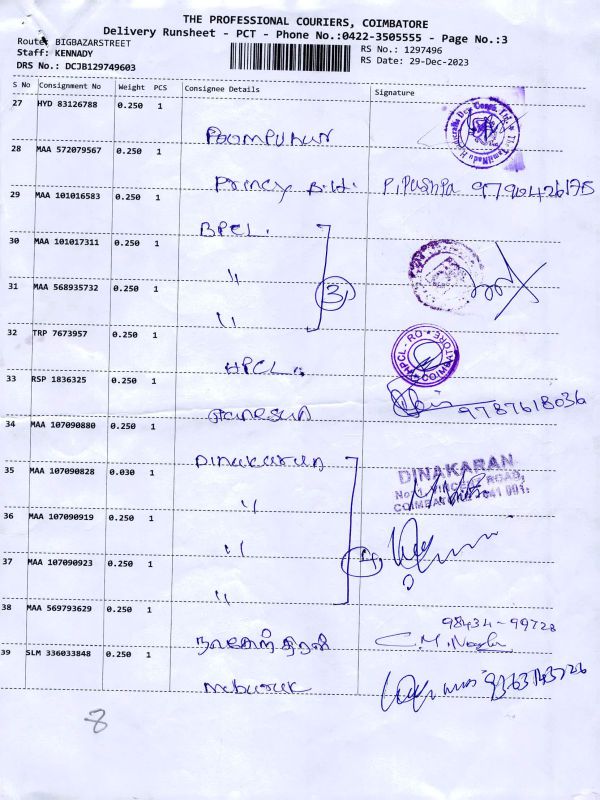 THE PROFESSIONAL COURIERS, COIMBATORE
Delivery Runsheet - PCT - Phone No.:0422-3505555 - Page No.:3
Route: BIGBAZARSTREET
RS No.: 1297496
Staff: KENNADY
RS Date: 29-Dec-2023
DRS No.: DCJB129749603
S No Consignment No Weight PCS Consignee Details Signature
27 HYD 83126788 0.250 1
Poompuhar
28 MAA 572079567 0.250 1
P. Pushpa
29 MAA 101016583 0.250 1
BPCL.
30 MAA 101017311 0.250 1
"
31 MAA 568935732 0.250 1 3
"
32 TRP 7673957 0.250 1
HPCL HPCL - RO - COIMBATORE
33 RSP 1836325 0.250 1
Ganesun 9787618036
34 MAA 107090880 0.250 1
Dinakaran
35 MAA 107090828 0.030 1 DINAKARAN
" COIMBATORE 641 001.
36 MAA 107090919 0.250 1
"
37 MAA 107090923 0.250 1 4
"
38 MAA 569793629 0.250 1
98434-99728
39 SLM 336033848 0.250 1
8